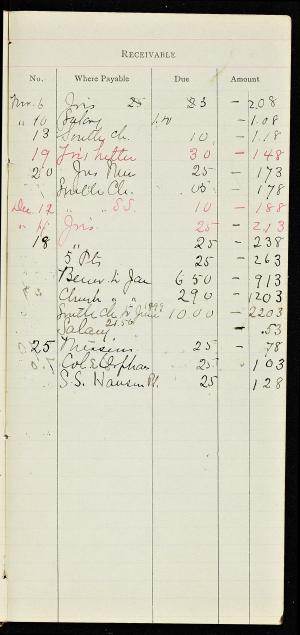 RECEIVABLE
No. Where Payable Due Amount
Nov. 6 Jris 25 23 – 2.08
" 10 Salary 1.00 – 1.08
13 Smith Ch. 10 – 1.18
19 30 – 1 48
20 Jris 25 – 1 73
Smith Ch. 05 – 1 78
Dec. 12 " S.S. 10 – 1 88
" 4 Jris 25 – 2 13
18 " 25 – 2 38
5 Pts 25 – 2 63
Benev. to Jan 6 50 – 9 13
Church " " 2 90 – 1203
South Ch to June 1899 10 00 – 2203
Salary 21.50 – .53
25 Mission 25 – 78
Col & Orphan 25 – 1 03
S.S. Hansen Pt. 25 – 1 28